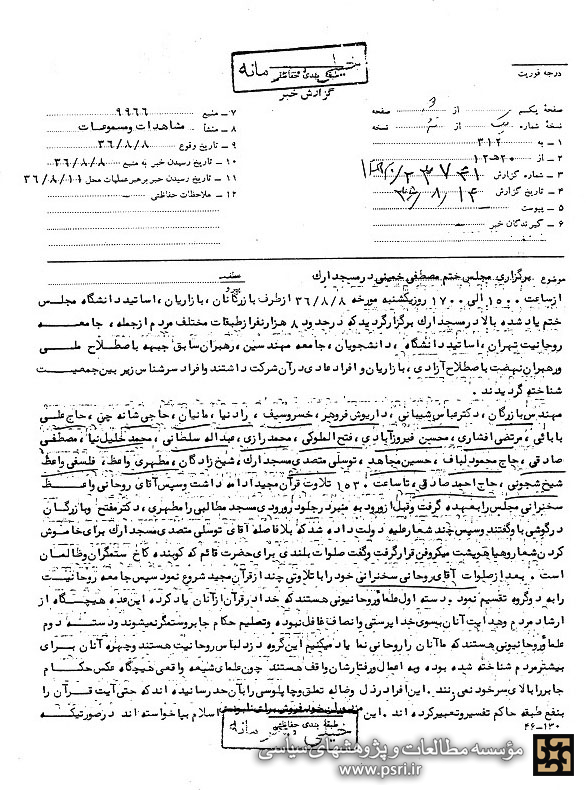 خیلی محرمانه
طبقه بندی حفاظتی
گزارش خبر
درجه فوریت
صفحه یک از ۳ صفحه
نسخه شماره یک از نسخه
۱ - به ۳۱۲
۲ - از ۲۰ هـ ۱۲
۳ - شماره گزارش
۴ - تاریخ گزارش ۳۶/۸/۱۴
۵ - پیوست
۶ - گیرندگان خبر
۷ - منبع ۹۹۶۶
۸ - منشأ مشاهدات ومسموعات
۹ - تاریخ وقوع ۳۶/۸/۸
۱۰ - تاریخ رسیدن خبر به منبع ۳۶/۸/۸
۱۱ - تاریخ رسیدن خبر برهبر عملیات محل ۳۶/۸/۱۱
۱۲ - ملاحظات حفاظتی
موضوع برگزاری مجلس ختم مصطفی خمینی در مسجد ارك
ازساعت ۱۵۰۰ الی ۱۷۰۰ روز یکشنبه مورخه ۳۶/۸/۸ ازطرف بازرگانان ، بازاریان ، اساتید دانشگاه مجلس
ختم یاد شده بالا در مسجد ارك برگزار گردید که در حدود ۸ هزار نفر از طبقات مختلف مردم از جمله ، جامعه
روحانیت تهران ، اساتید دانشگاه ، دانشجویان ، جامعه مهندسین ، رهبران سابق جبهه باصطلاح ملی
و رهبران نهضت باصطلاح آزادی ، بازاریان و افراد عادی در آن شرکت داشتند و افراد سرشناس زیر بین جمعیت
شناخته گردیدند .
مهندس بازرگان ، دکتر عباس شیبانی ، داریوش فروهر ، خسرو سیف ، رادنیا ، مانیان ، حاجی شانه چی ، حاج علی
بابائی ، مرتضی افشاری ، محسین فیروزآبادی ، فتح الملوکی ، محمد رازی ، عبداله سلطانی ، محمد خلیل نیا ، مصطفی
صادقی ، حاج محمود لباف ، حسین مجاهد ، توسلی متصدی مسجد ارك ، شیخ زادگان ، مطهری واعظ ، فلسفی واعظ
شیخ شجونی ، حاج احمد صادقی ، تا ساعت ۱۵۳۰ تلاوت قرآن مجید ادامه داشت وسپس آقای روحانی واعظ
سخنرانی مجلس را بعهده گرفت وقبل از ورود به منبر در جلو در ورودی مسجد مطالبی را مطهری ، دکتر مفتح و بازرگان
در گوشی با و گفتند وسپس چند شعار علیه دولت داده شد که بلافاصله آقای توسلی متصدی مسجد ارك برای خاموش
کردن شعارها و هیاهو پشت میکروفن قرار گرفت وگفت صلوات بلندی برای حضرت قائم که کوبنده کاخ ستمگران و ظالمان
است . بعد از صلوات آقای روحانی سخنرانی خود را با تلاوتی چند از قرآن مجید شروع نمود سپس جامعه روحانیت
را به دو گروه تقسیم نمود دسته اول علما و روحانیونی هستند که خدا در قرآن از آنان یاد کرده این عده هیچگاه از
ارشاد مردم و هدایت آنان بسوی خدا پرستی و انصاف غافل نبوده و تعلیم حکام جابر و ستمگر نمیشوند ودسته دوم
علما و روحانیونی هستند که ما آنان را روحانی نما یاد میکنیم این گروه دزد لباس روحانیت هستند وچهره آنان برای
بیشتر مردم شناخته شده بوده وبه اعمال و رفتارشان واقف هستند چون علمای شیعه واقعی هیچگاه عکس حکام
جابر را بالای سر خود نمی زنند . این افراد رذل و ضاله تملق وچاپلوسی را بآن حد رسانیده اند که حتی آیت قرآن را
بنفع طبقه حاکم تفسیر و تعبیر کرده اند . این اسلام بپا خواسته اند در صورتیکه
طبقه بندی حفاظتی
خیلی محرمانه
۴۶-۱۳۰
مؤسسه مطالعات و پژوهشهای سیاسی
www.psri.ir